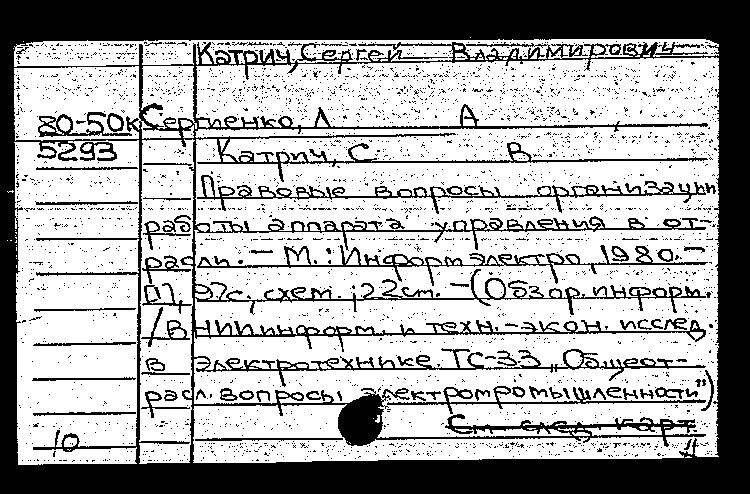 Катрич, Сергей Владимирович
80-50к Сергиенко, Л А
5293 Катрич, С В
Правовые вопросы организации
работы аппарата управления в от-
расли. — М.: Информэлектро, 1980. —
97с., схем.; 22см. — (Обзор. информ.
/ВНИИинформ. и техн.-экон. исслед.
в электротехнике. ТС-33 „Общеот-
расл. вопросы электромромышленности")
См след. карт
10